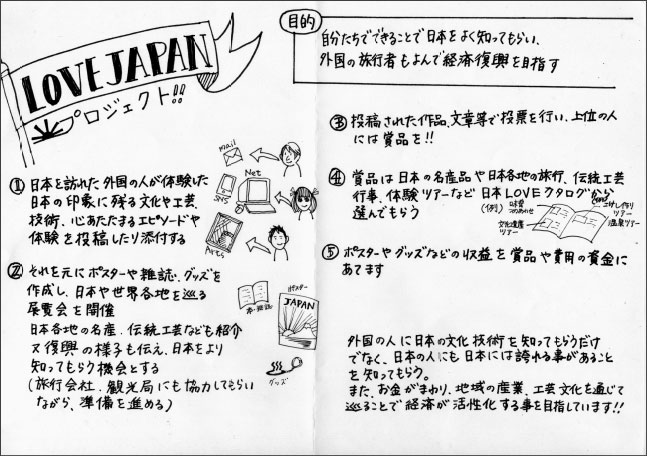 LOVE JAPAN
プロジェクト!!
目的
自分たちでできることで日本をよく知ってもらい、
外国の旅行者もよんで経済復興を目指す
① 日本を訪れた外国の人が体験した
日本の印象に残る文化や工芸、
技術、心あたたまるエピソードや
体験を投稿したり添付する
mail
Net
SNS
Arts
② それを元にポスターや雑誌、グッズを
作成し、日本や世界各地を巡る
展覧会を開催
日本各地の名産、伝統工芸なども紹介
又復興の様子も伝え、日本をより
知ってもらう機会とする
(旅行会社、観光局にも協力してもらい
ながら、準備を進める)
本・雑誌
ポスター
JAPAN
グッズ
③ 投稿された作品、文章等で投票を行い、上位の人
には賞品を!!
④ 賞品は日本の名産品や日本各地の旅行、伝統工芸
行事、体験ツアーなど日本LOVEカタログから
選んでもらう
(例)
つめあわせ
文化遺産
ツアー
こけし作り
ツアー
温泉ツアー
⑤ ポスターやグッズなどの収益を賞品や費用の資金に
あてます
外国の人に日本の文化技術を知ってもらうだけ
でなく、日本の人にも日本には誇れる事があること
を知ってもらう。
また、お金がまわり、地域の産業、工芸文化を通じて
巡ることで経済が活性化する事を目指しています!!